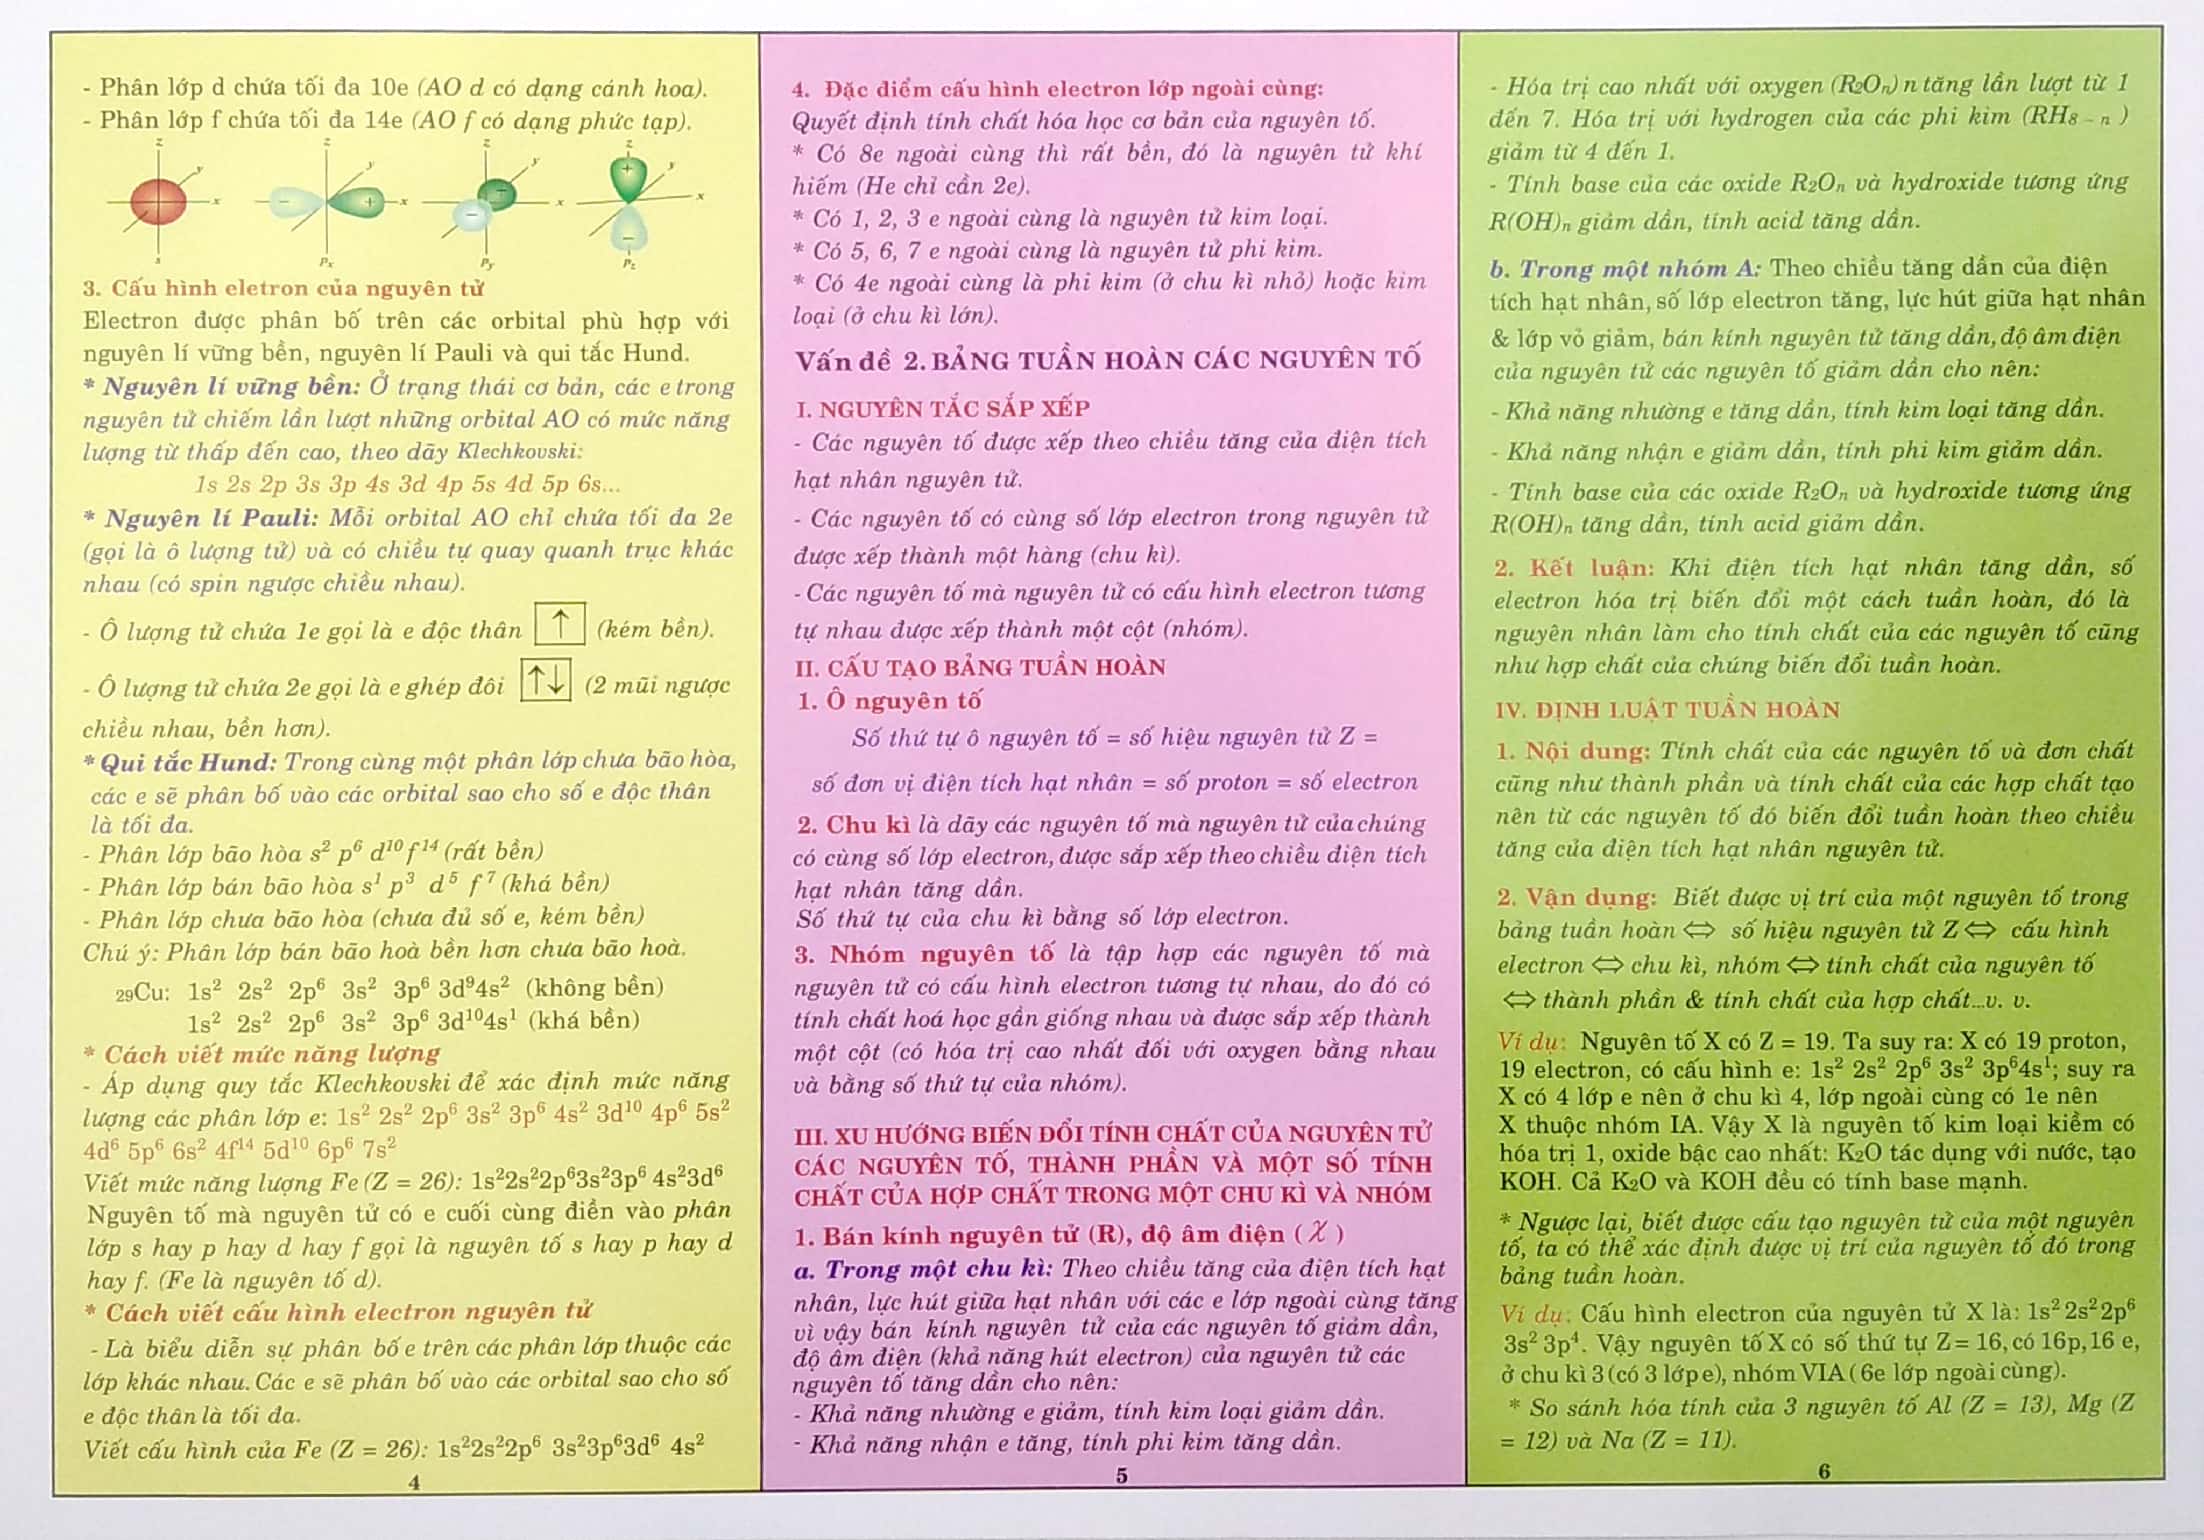 - Phân lớp d chứa tối đa 10e (AO d có dạng cánh hoa).
- Phân lớp f chứa tối đa 14e (AO f có dạng phức tạp).
z z z z
y y y y
x x x x
- + - - + -
s Px Py Pz
3. Cấu hình eletron của nguyên tử
Electron được phân bố trên các orbital phù hợp với
nguyên lí vững bền, nguyên lí Pauli và qui tắc Hund.
* Nguyên lí vững bền: Ở trạng thái cơ bản, các e trong
nguyên tử chiếm lần lượt những orbital AO có mức năng
lượng từ thấp đến cao, theo dãy Klechkovski:
1s 2s 2p 3s 3p 4s 3d 4p 5s 4d 5p 6s...
* Nguyên lí Pauli: Mỗi orbital AO chỉ chứa tối đa 2e
(gọi là ô lượng tử) và có chiều tự quay quanh trục khác
nhau (có spin ngược chiều nhau).
- Ô lượng tử chứa 1e gọi là e độc thân ↑ (kém bền).
- Ô lượng tử chứa 2e gọi là e ghép đôi ↑↓ (2 mũi ngược
chiều nhau, bền hơn).
* Qui tắc Hund: Trong cùng một phân lớp chưa bão hòa,
các e sẽ phân bố vào các orbital sao cho số e độc thân
là tối đa.
- Phân lớp bão hòa s² p⁶ d¹⁰ f¹⁴ (rất bền)
- Phân lớp bán bão hòa s¹ p³ d⁵ f⁷ (khá bền)
- Phân lớp chưa bão hòa (chưa đủ số e, kém bền)
Chú ý: Phân lớp bán bão hoà bền hơn chưa bão hoà.
₂₉Cu: 1s² 2s² 2p⁶ 3s² 3p⁶ 3d⁹4s² (không bền)
1s² 2s² 2p⁶ 3s² 3p⁶ 3d¹⁰4s¹ (khá bền)
* Cách viết mức năng lượng
- Áp dụng quy tắc Klechkovski để xác định mức năng
lượng các phân lớp e: 1s² 2s² 2p⁶ 3s² 3p⁶ 4s² 3d¹⁰ 4p⁶ 5s²
4d⁶ 5p⁶ 6s² 4f¹⁴ 5d¹⁰ 6p⁶ 7s²
Viết mức năng lượng Fe (Z = 26): 1s²2s²2p⁶3s²3p⁶ 4s²3d⁶
Nguyên tố mà nguyên tử có e cuối cùng điền vào phân
lớp s hay p hay d hay f gọi là nguyên tố s hay p hay d
hay f. (Fe là nguyên tố d).
* Cách viết cấu hình electron nguyên tử
- Là biểu diễn sự phân bố e trên các phân lớp thuộc các
lớp khác nhau. Các e sẽ phân bố vào các orbital sao cho số
e độc thân là tối đa.
Viết cấu hình của Fe (Z = 26): 1s²2s²2p⁶ 3s²3p⁶3d⁶ 4s²
4
4. Đặc điểm cấu hình electron lớp ngoài cùng:
Quyết định tính chất hóa học cơ bản của nguyên tố.
* Có 8e ngoài cùng thì rất bền, đó là nguyên tử khí
hiếm (He chỉ cần 2e).
* Có 1, 2, 3 e ngoài cùng là nguyên tử kim loại.
* Có 5, 6, 7 e ngoài cùng là nguyên tử phi kim.
* Có 4e ngoài cùng là phi kim (ở chu kì nhỏ) hoặc kim
loại (ở chu kì lớn).
Vấn đề 2. BẢNG TUẦN HOÀN CÁC NGUYÊN TỐ
I. NGUYÊN TẮC SẮP XẾP
- Các nguyên tố được xếp theo chiều tăng của điện tích
hạt nhân nguyên tử.
- Các nguyên tố có cùng số lớp electron trong nguyên tử
được xếp thành một hàng (chu kì).
- Các nguyên tố mà nguyên tử có cấu hình electron tương
tự nhau được xếp thành một cột (nhóm).
II. CẤU TẠO BẢNG TUẦN HOÀN
1. Ô nguyên tố
Số thứ tự ô nguyên tố = số hiệu nguyên tử Z =
số đơn vị điện tích hạt nhân = số proton = số electron
2. Chu kì là dãy các nguyên tố mà nguyên tử của chúng
có cùng số lớp electron, được sắp xếp theo chiều điện tích
hạt nhân tăng dần.
Số thứ tự của chu kì bằng số lớp electron.
3. Nhóm nguyên tố là tập hợp các nguyên tố mà
nguyên tử có cấu hình electron tương tự nhau, do đó có
tính chất hoá học gần giống nhau và được sắp xếp thành
một cột (có hóa trị cao nhất đối với oxygen bằng nhau
và bằng số thứ tự của nhóm).
III. XU HƯỚNG BIẾN ĐỔI TÍNH CHẤT CỦA NGUYÊN TỬ
CÁC NGUYÊN TỐ, THÀNH PHẦN VÀ MỘT SỐ TÍNH
CHẤT CỦA HỢP CHẤT TRONG MỘT CHU KÌ VÀ NHÓM
1. Bán kính nguyên tử (R), độ âm điện ( χ )
a. Trong một chu kì: Theo chiều tăng của điện tích hạt
nhân, lực hút giữa hạt nhân với các e lớp ngoài cùng tăng
vì vậy bán kính nguyên tử của các nguyên tố giảm dần,
độ âm điện (khả năng hút electron) của nguyên tử các
nguyên tố tăng dần cho nên:
- Khả năng nhường e giảm, tính kim loại giảm dần.
- Khả năng nhận e tăng, tính phi kim tăng dần.
5
- Hóa trị cao nhất với oxygen (R₂Oₙ) n tăng lần lượt từ 1
đến 7. Hóa trị với hydrogen của các phi kim (RH₈₋ₙ)
giảm từ 4 đến 1.
- Tính base của các oxide R₂Oₙ và hydroxide tương ứng
R(OH)ₙ giảm dần, tính acid tăng dần.
b. Trong một nhóm A: Theo chiều tăng dần của điện
tích hạt nhân, số lớp electron tăng, lực hút giữa hạt nhân
& lớp vỏ giảm, bán kính nguyên tử tăng dần, độ âm điện
của nguyên tử các nguyên tố giảm dần cho nên:
- Khả năng nhường e tăng dần, tính kim loại tăng dần.
- Khả năng nhận e giảm dần, tính phi kim giảm dần.
- Tính base của các oxide R₂Oₙ và hydroxide tương ứng
R(OH)ₙ tăng dần, tính acid giảm dần.
2. Kết luận: Khi điện tích hạt nhân tăng dần, số
electron hóa trị biến đổi một cách tuần hoàn, đó là
nguyên nhân làm cho tính chất của các nguyên tố cũng
như hợp chất của chúng biến đổi tuần hoàn.
IV. ĐỊNH LUẬT TUẦN HOÀN
1. Nội dung: Tính chất của các nguyên tố và đơn chất
cũng như thành phần và tính chất của các hợp chất tạo
nên từ các nguyên tố đó biến đổi tuần hoàn theo chiều
tăng của điện tích hạt nhân nguyên tử.
2. Vận dụng: Biết được vị trí của một nguyên tố trong
bảng tuần hoàn ⇔ số hiệu nguyên tử Z ⇔ cấu hình
electron ⇔ chu kì, nhóm ⇔ tính chất của nguyên tố
⇔ thành phần & tính chất của hợp chất...v. v.
Ví dụ: Nguyên tố X có Z = 19. Ta suy ra: X có 19 proton,
19 electron, có cấu hình e: 1s² 2s² 2p⁶ 3s² 3p⁶4s¹; suy ra
X có 4 lớp e nên ở chu kì 4, lớp ngoài cùng có 1e nên
X thuộc nhóm IA. Vậy X là nguyên tố kim loại kiềm có
hóa trị 1, oxide bậc cao nhất: K₂O tác dụng với nước, tạo
KOH. Cả K₂O và KOH đều có tính base mạnh.
* Ngược lại, biết được cấu tạo nguyên tử của một nguyên
tố, ta có thể xác định được vị trí của nguyên tố đó trong
bảng tuần hoàn.
Ví dụ: Cấu hình electron của nguyên tử X là: 1s² 2s² 2p⁶
3s² 3p⁴. Vậy nguyên tố X có số thứ tự Z = 16, có 16p, 16 e,
ở chu kì 3 (có 3 lớp e), nhóm VIA ( 6e lớp ngoài cùng).
* So sánh hóa tính của 3 nguyên tố Al (Z = 13), Mg (Z
= 12) và Na (Z = 11).
6